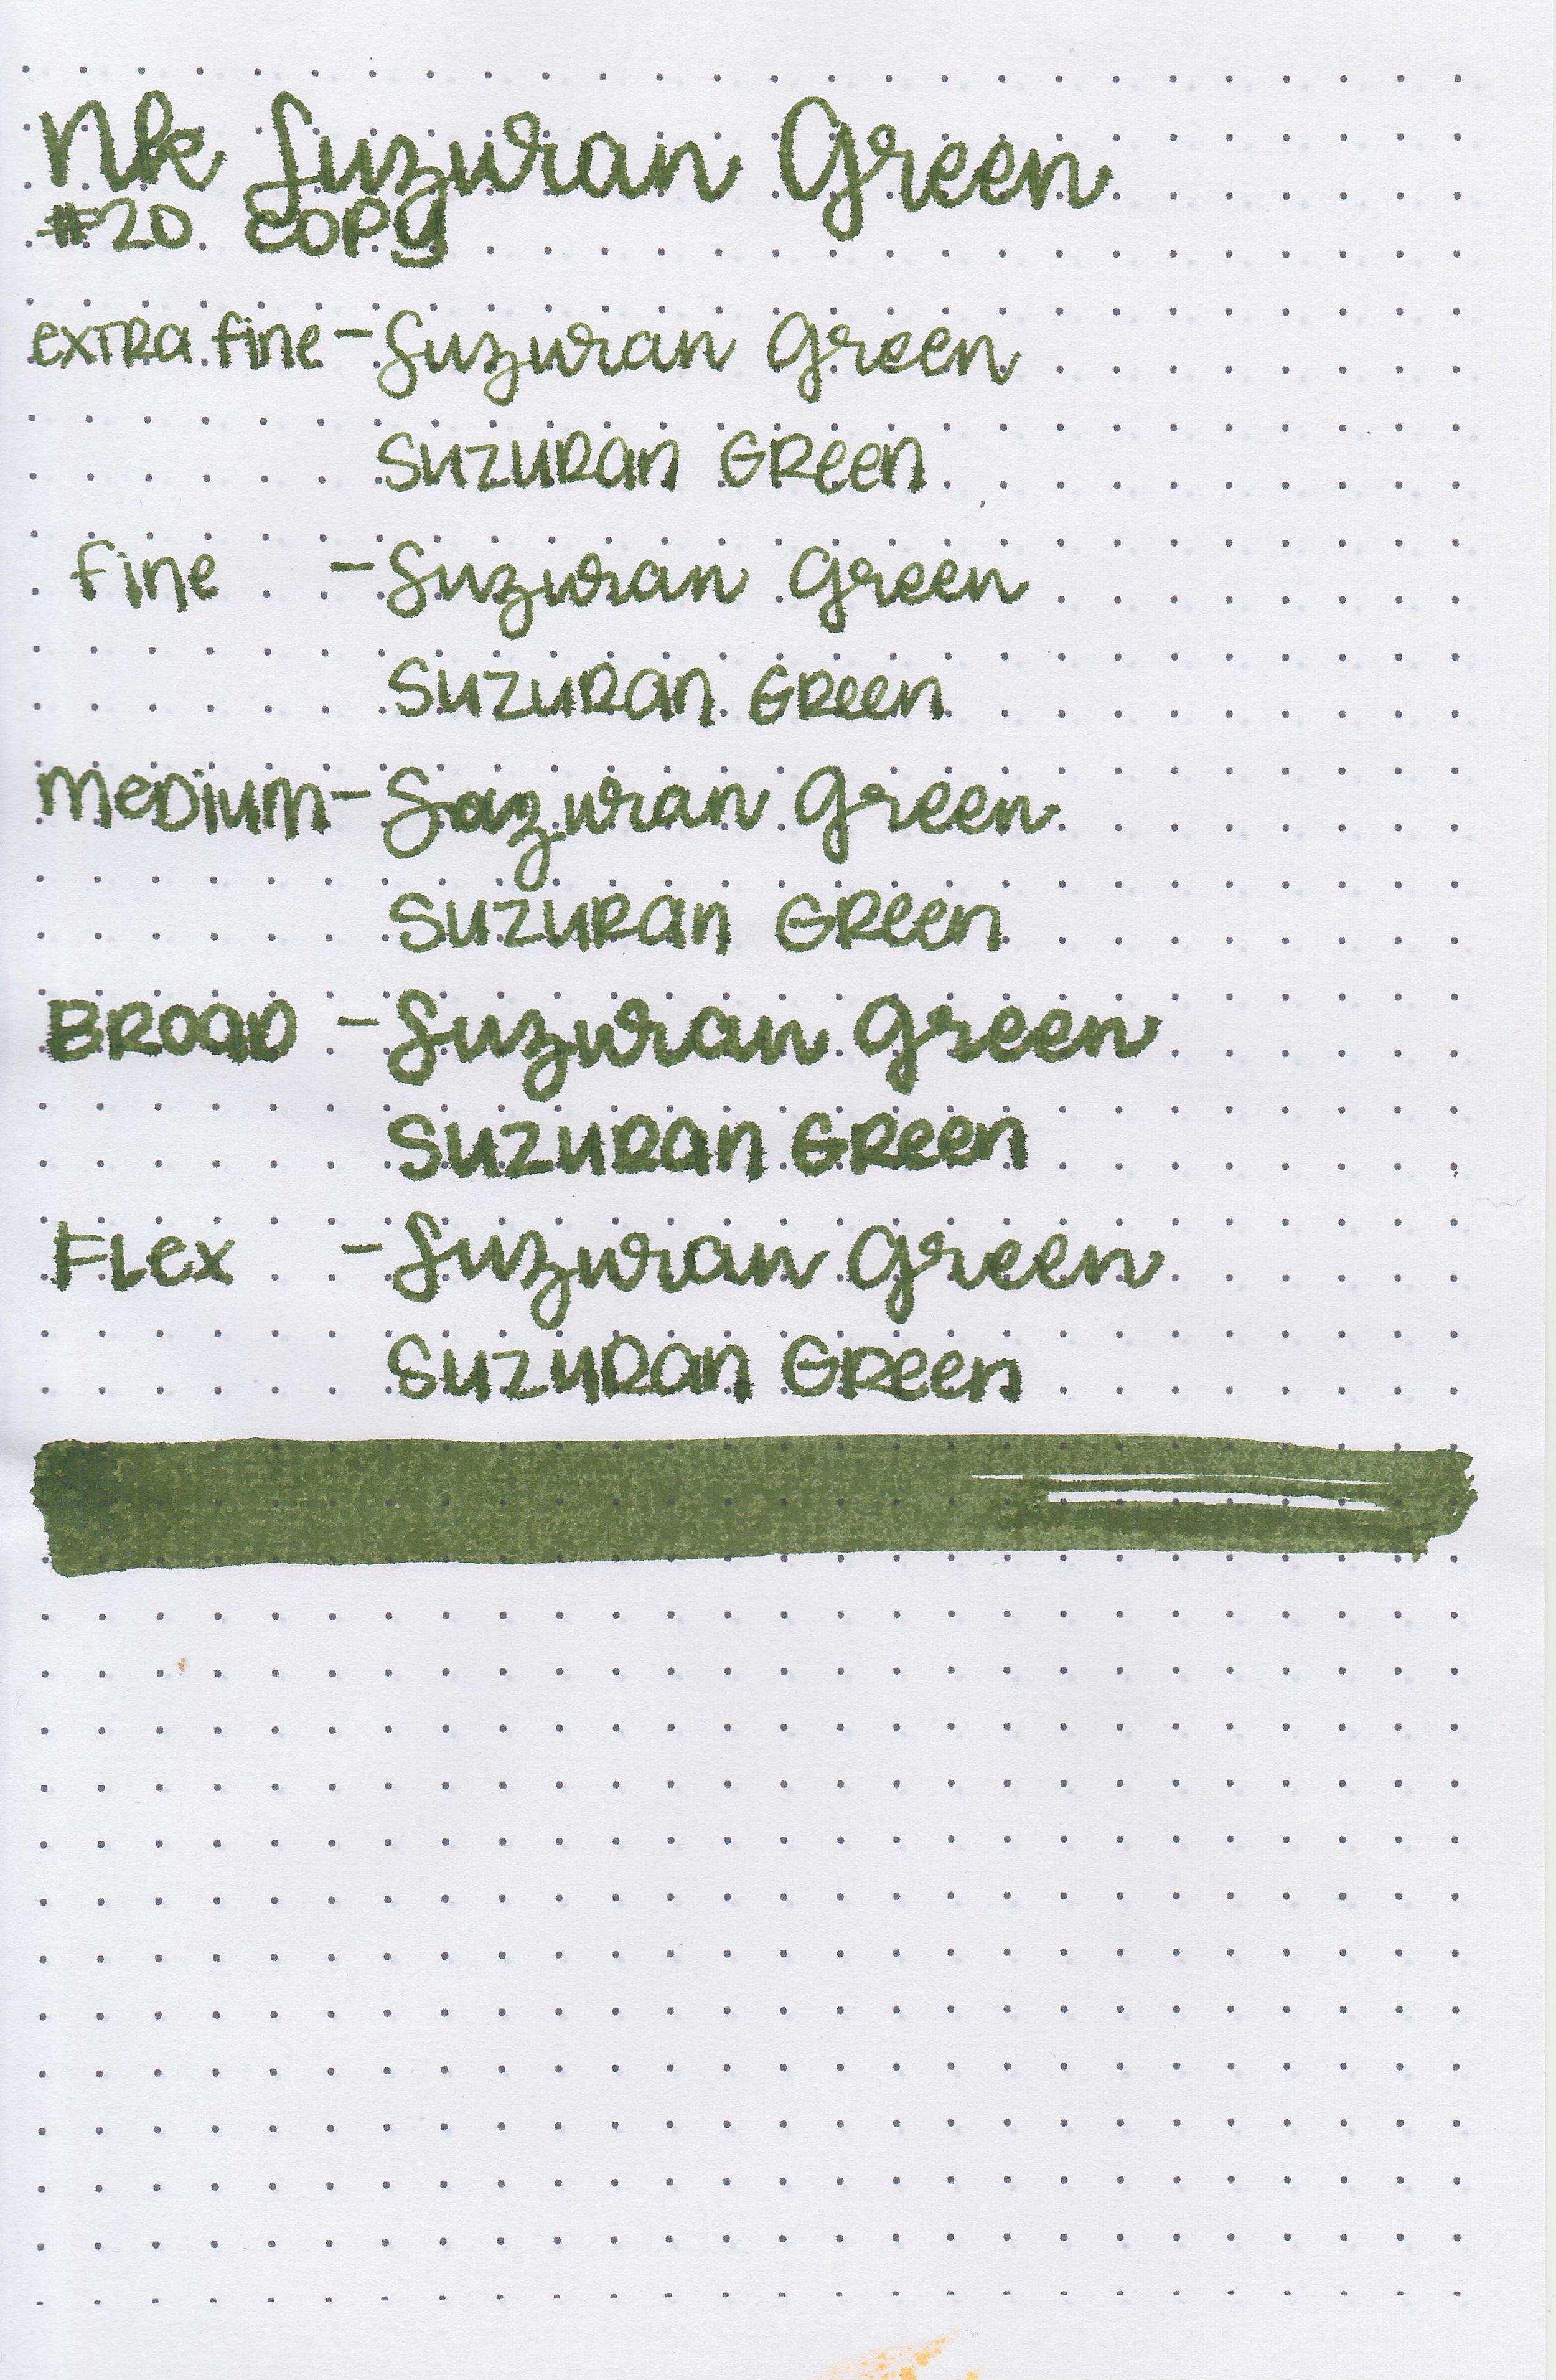 Nk Suzuran Green
#20 COPY
extra fine - Suzuran Green
SUZURAN GREEN
fine - Suzuran Green
SUZURAN GREEN
MEDIUM - Sazuran Green
SUZURAN GREEN
BROAD - Suzuran Green
SUZURAN GREEN
FLEX - Suzuran Green
SUZURAN GREEN